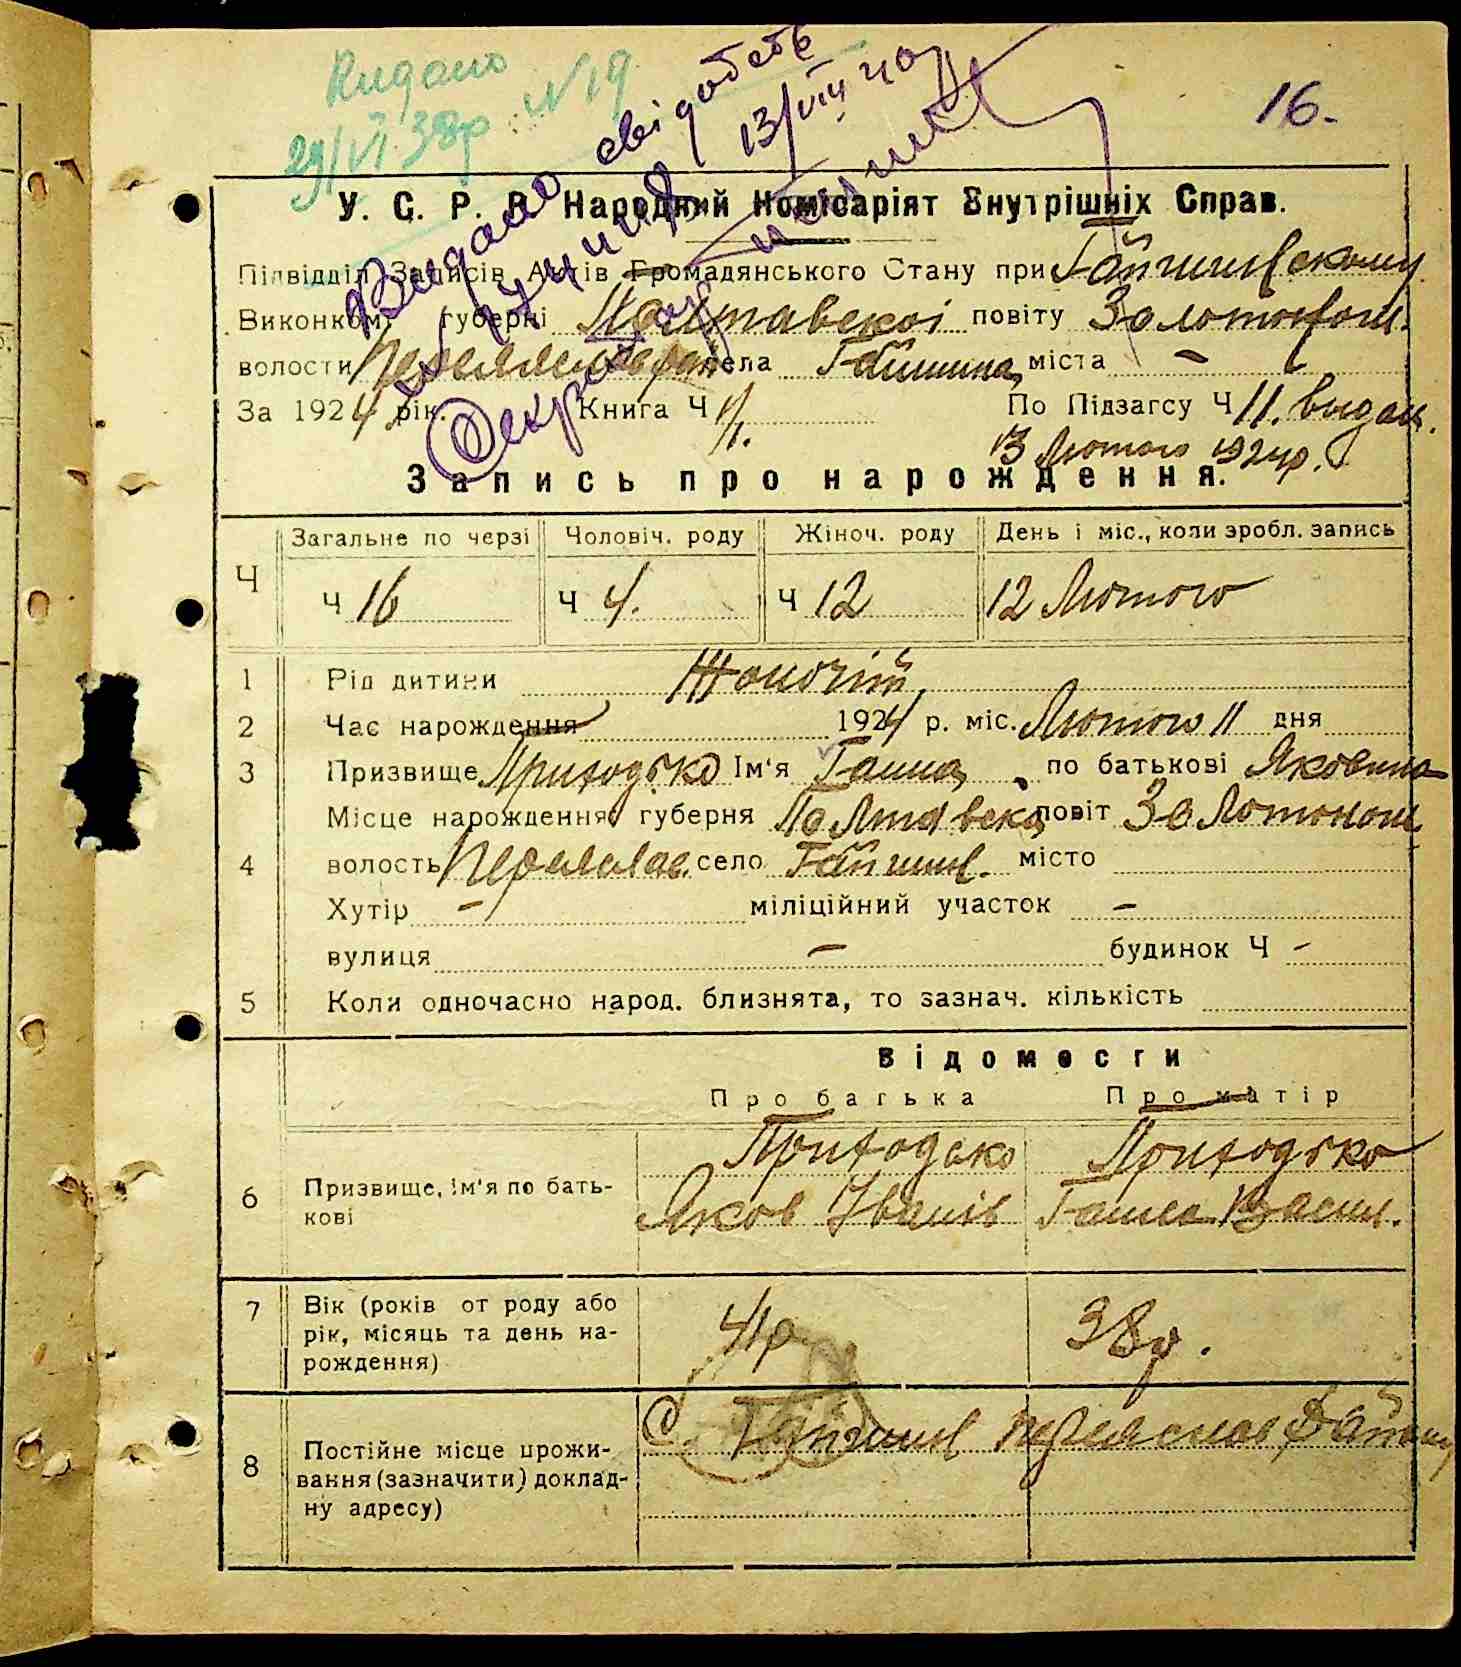 Видано
29/VI 38р. N19
Видано свідоцтв
13/VIII 40
Секретар
16.
У. С. Р. Р. Народний Комісаріят Внутрішніх Справ.
Підвідділ Записів Актів Громадянського Стану при Гайшинському
Виконкомі губерні Полтавскоі повіту Золотонош.
волости Переяславрай села Гайшина міста –
За 1924 рік. Книга Ч 1/1. По Підзагсу Ч 11. выдан.
13 Лютого 1924р.
Запись про нарождення.
Ч Загальне по черзі Чоловіч. роду Жіноч. роду День і міс., коли зробл. запись
Ч 16 Ч 4. Ч 12 12 Лютого
1 Рід дитини Жоночій
2 Час нарождення 1924 р. міс. Лютого 11 дня
3 Призвище Приходько Ім'я Ганна, по батькові Яковина
Місце нарождення губерня Полтавска повіт Золотонош
4 волость Переяслав. село Гайшин. місто
Хутір – міліційний участок –
вулиця – будинок Ч –
5 Коли одночасно народ. близнята, то зазнач. кількість
Відомости
Про батька Про матір
6 Призвище, ім'я по батькові Приходько Приходько
Яков Іванів Ганна Васил.
7 Вік (років от роду або рік, місяць та день нарождення) 41р 38р.
8 Постійне місце проживання (зазначити) докладну адресу) С. Гайшин Переяслав Району